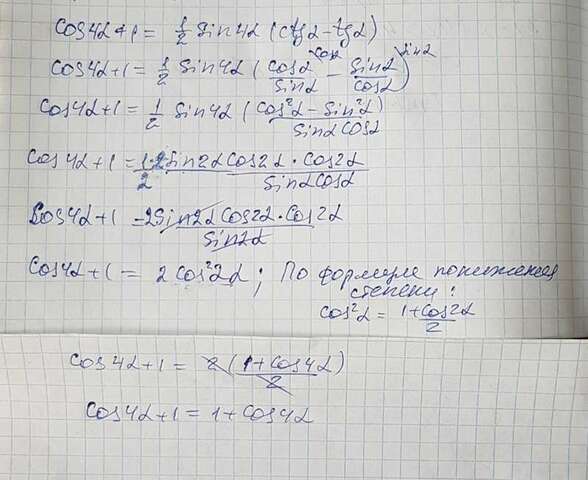 cos4α+1 = 1/2 sin4α (ctgα - tgα)
cos4α+1 = 1/2 sin4α (cosα/sinα ^cosα - sinα/cosα ^sinα)
cos4α+1 = 1/2 sin4α (cos²α - sin²α)/(sinα cosα)
cos4α+1 = 1·2 sin2α cos2α · cos2α / 2 sinα cosα
cos4α+1 = 2sin2α cos2α · cos2α / sin2α
cos4α+1 = 2 cos²2α ; По формуле понижения
степени:
cos²α = 1+cos2α / 2
cos4α+1 = 2 (1+cos4α) / 2
cos4α+1 = 1+cos4α